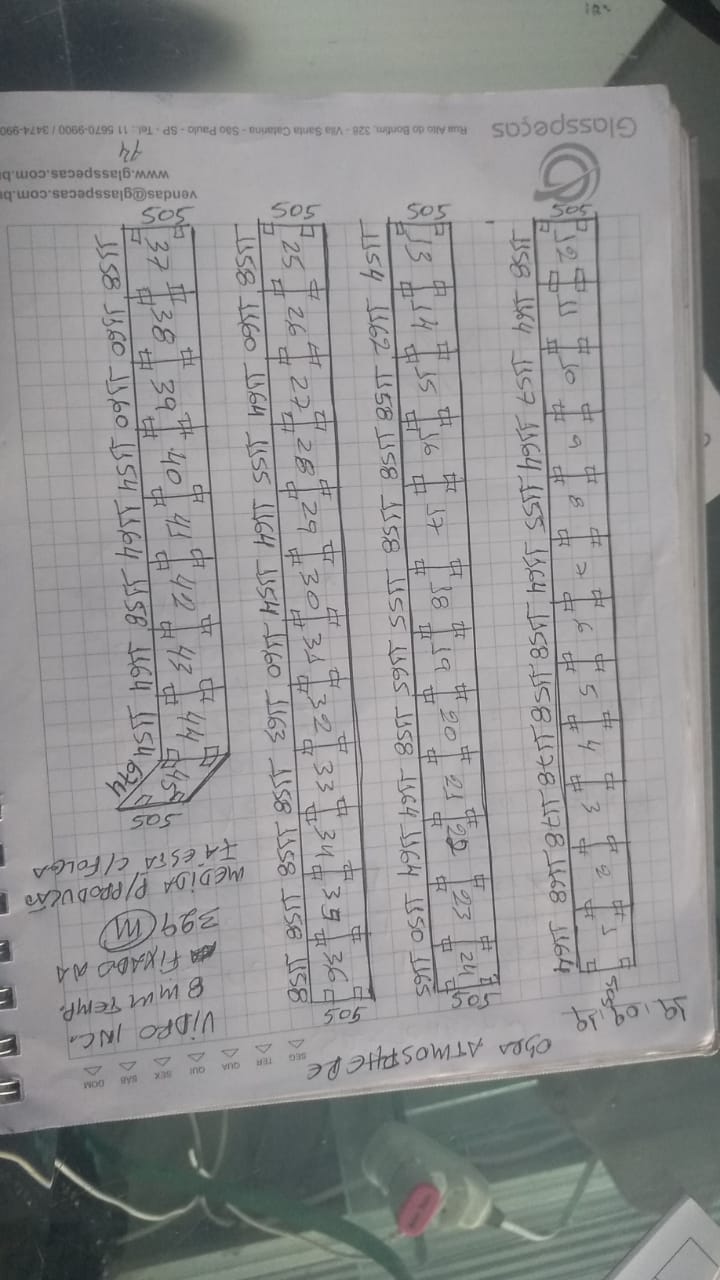 Glasspeças
Rua Alto do Bonfim, 328 - Vila Santa Catarina - São Paulo - SP - Tel.: 11 5670-9900 / 3474-990
www.glasspecas.com.b
vendas@glasspecas.com.b
14
SEG TER QUA QUI SEX SÁB DOM
OBRA ATMOSPHERE
19.09.19
505 12 11 10 9 8 7 6 5 4 3 2 1 505
1158 1164 1157 1164 1155 1164 1158 1158 1178 1178 1168 1164
505 13 14 15 16 17 18 19 20 21 22 23 24 505
1154 1162 1158 1158 1158 1155 1165 1158 1164 1164 1150 1165
505 25 26 27 28 29 30 31 32 33 34 35 36 505
1158 1160 1164 1155 1164 1154 1160 1163 1158 1158 1158 1158
505 37 38 39 40 41 42 43 44 45 505
1158 1160 1160 1154 1164 1158 1164 1154 674
VIDRO INC.
8 mm TEMP.
FIXADO na
399 m
MEDIDA P/PRODUÇÃO
JÁ ESTÁ C/FOLGA